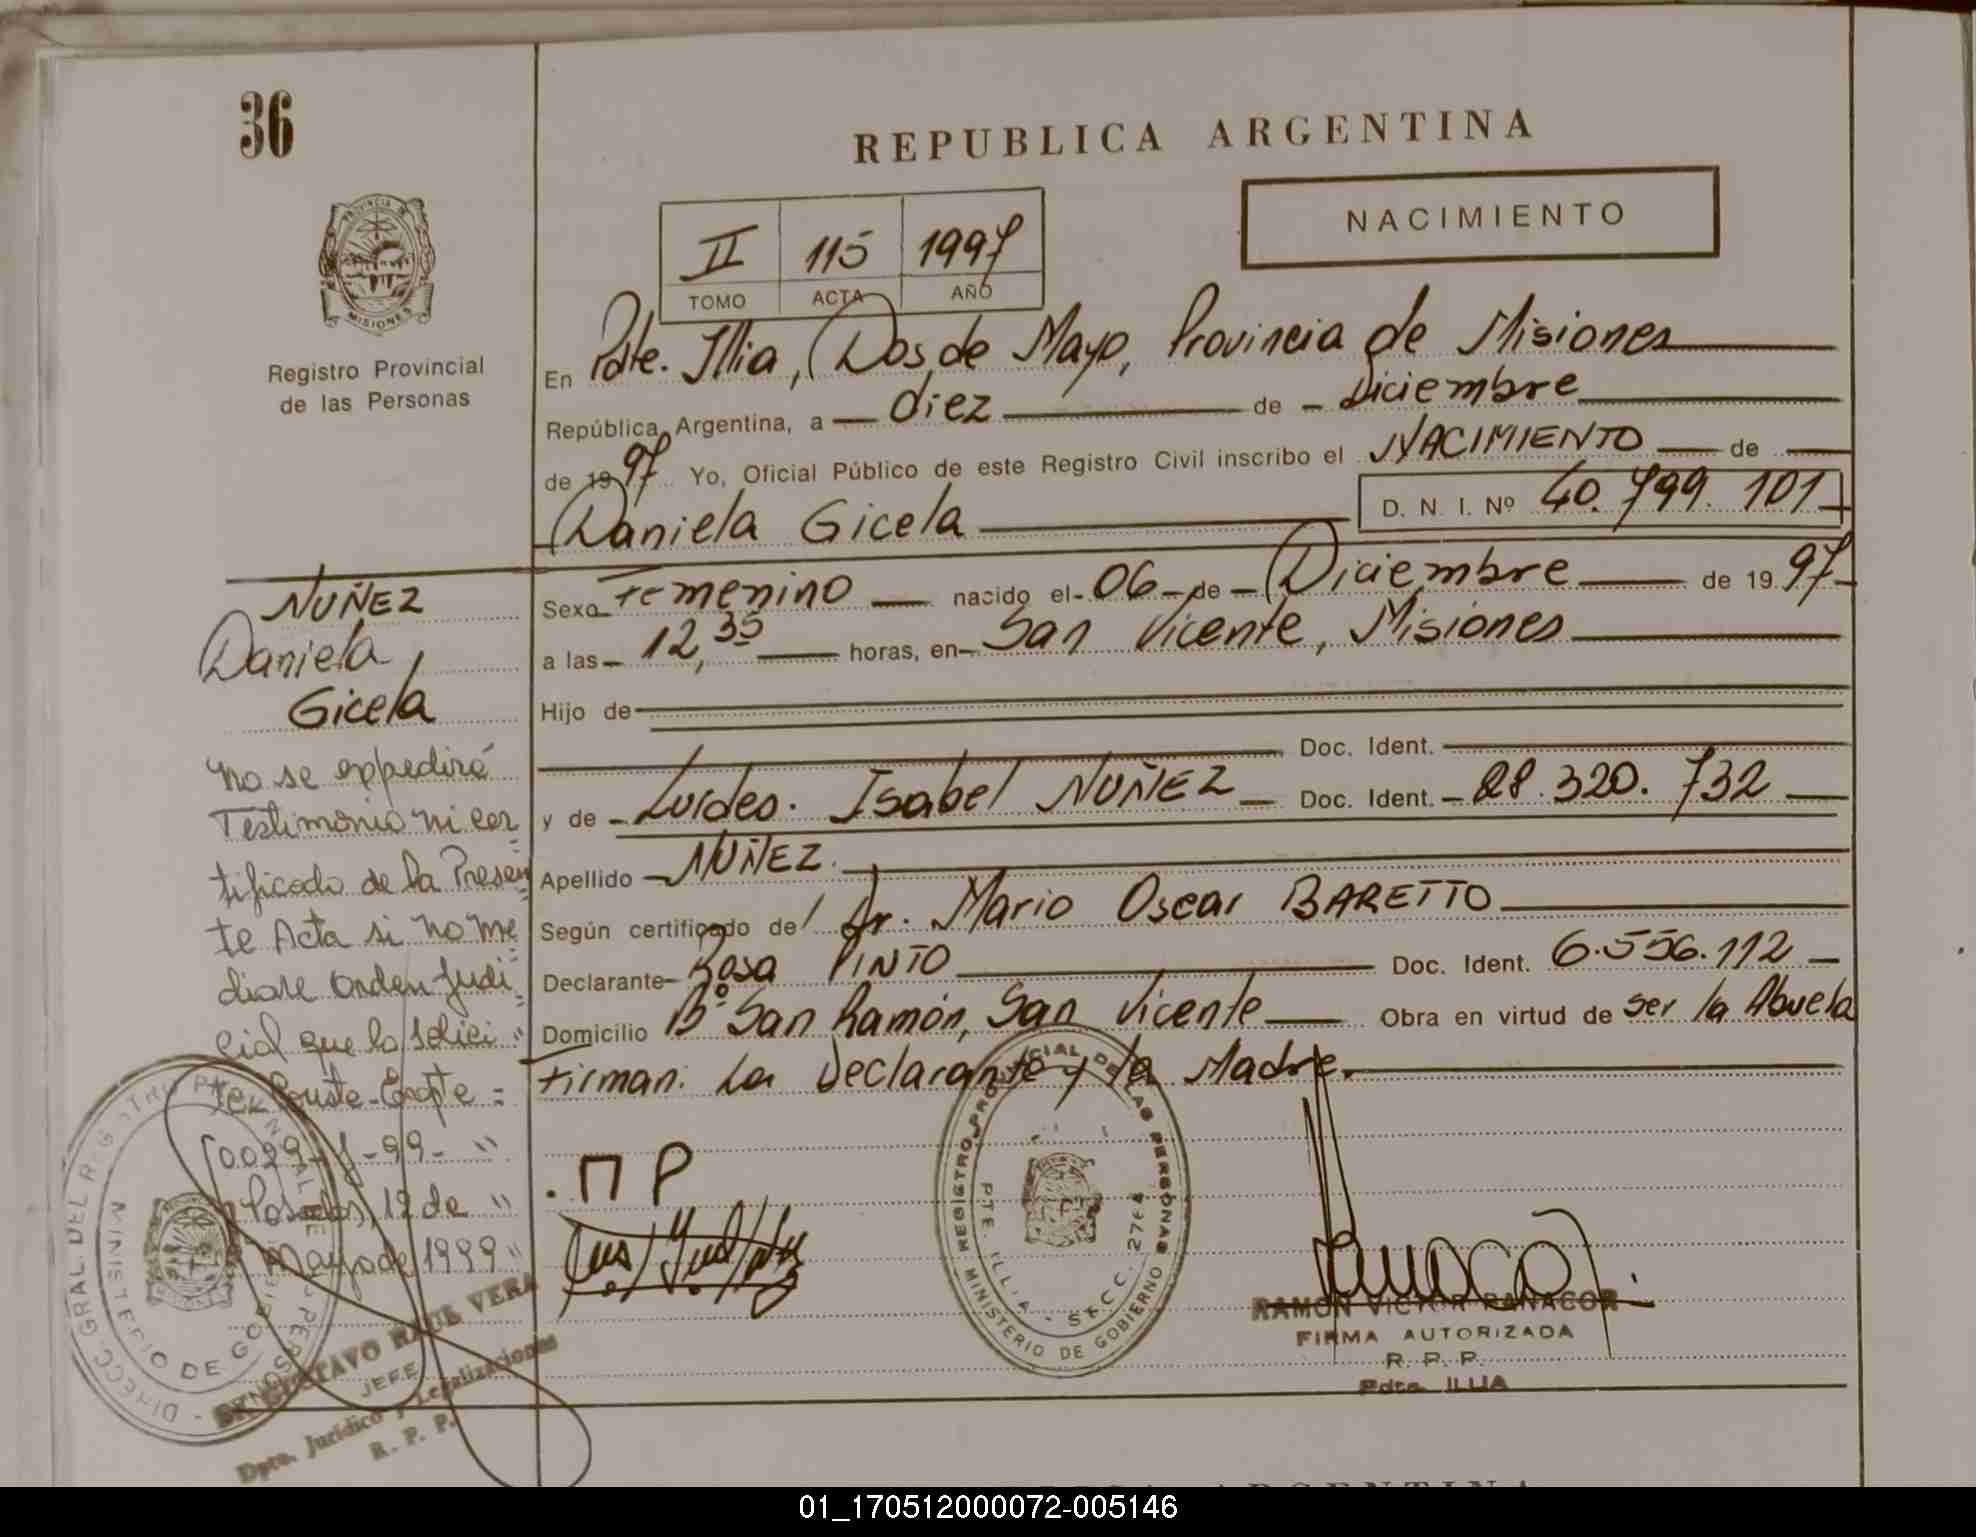 36
PROVINCIA DE
MISIONES
Registro Provincial
de las Personas
REPUBLICA ARGENTINA
NACIMIENTO
II 115 1997
TOMO ACTA AÑO
En Pdte. Illia, Dos de Mayo, Provincia de Misiones
República Argentina, a diez de Diciembre
de 1997 Yo, Oficial Público de este Registro Civil inscribo el NACIMIENTO de
Daniela Gicela D. N. I. Nº 40.799.101
NUÑEZ
Daniela,
Gicela
Sexo Femenino nacido el 06 de Diciembre de 1997
a las 12,35 horas, en San Vicente, Misiones
Hijo de
Doc. Ident.
y de Lurdes. Isabel NUÑEZ Doc. Ident. 28.320.732
Apellido NUÑEZ.
Según certificado del Dr. Mario Oscar BARETTO
Declarante Rosa PINTO Doc. Ident. 6.556.112
Domicilio Bº San Ramón, San Vicente Obra en virtud de ser la Abuela
Firman: La Declarante y la Madre.
no se expedirá
Testimonio ni cer
tificado de la Presen
te Acta si no me
diare orden Judi
cial que lo solici
te
99
Posadas, 12 de
Mayo de 1999
. П P
REGISTRO PROVINCIAL DE LAS PERSONAS
PTE. ILLIA - SECC. 2764
MINISTERIO DE GOBIERNO
RAMON VICTOR
FIRMA AUTORIZADA
R. P. P.
Pdte. ILLIA
DIRECC. GRAL. DEL REGISTRO
MINISTERIO DE
GUSTAVO RAUL VERA
JEFE
Dpto. Jurídico y Legalizaciones
R. P. P.
ARGENTINA
01_170512000072-005146